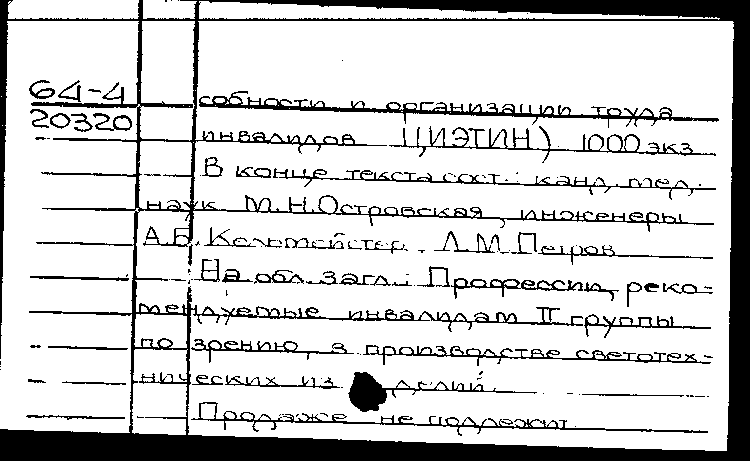 64-4
20320
собности и организации труда
инвалидов ЦИЭТИН) 1000 экз
В конце текста сост.: канд. мед.
наук М.Н.Островская, инженеры
А.Б. Кельмейстер, Л.М.Петров
На обл. загл.: Профессии, реко=
мендуемые инвалидам II группы
по зрению, в производстве светотех=
нических изделий.
Продаже не подлежит